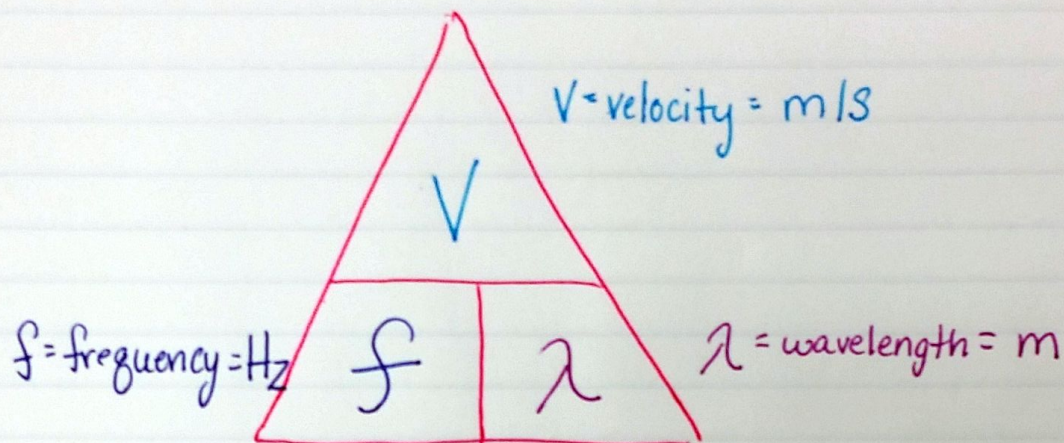 V=velocity = m/s
V
f=frequency=Hz
f
λ
λ =wavelength= m